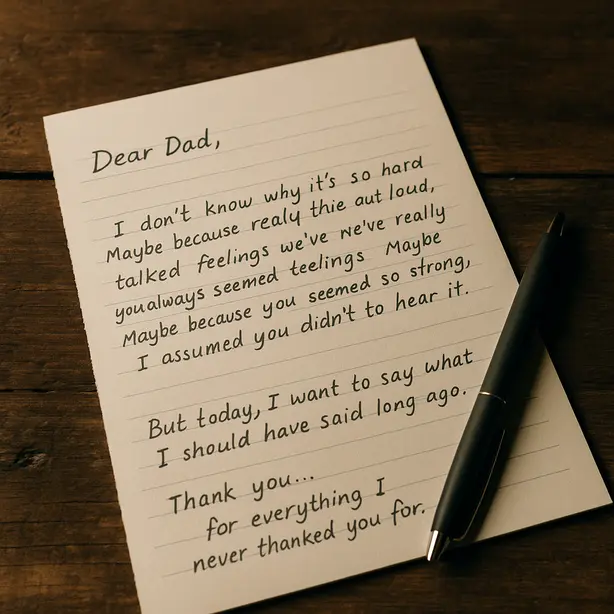 Dear Dad,
I don't know why it's so hard
Maybe because realy thie aut loud,
talked feelings we've we've really
youalways seemed teelings Maybe
Maybe because you seemed so strong,
I assumed you didn't to hear it.
But today, I want to say what
I should have said long ago.
Thank you...
for everything I
never thanked you for.